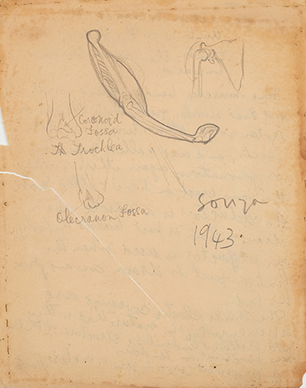 Coronoid
Fossa
Trochlea
Olecranon Fossa
Souza
1943.